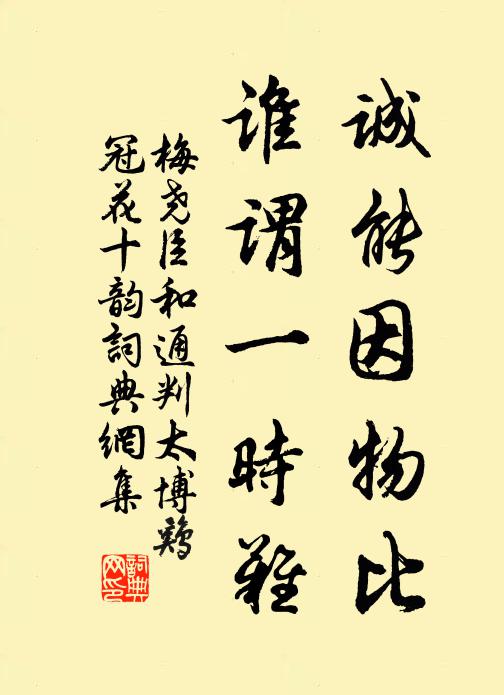 誠能因物比
誰謂一時難
梅堯臣和通判太博鷄
冠花十韵詞典網集
詞典网印